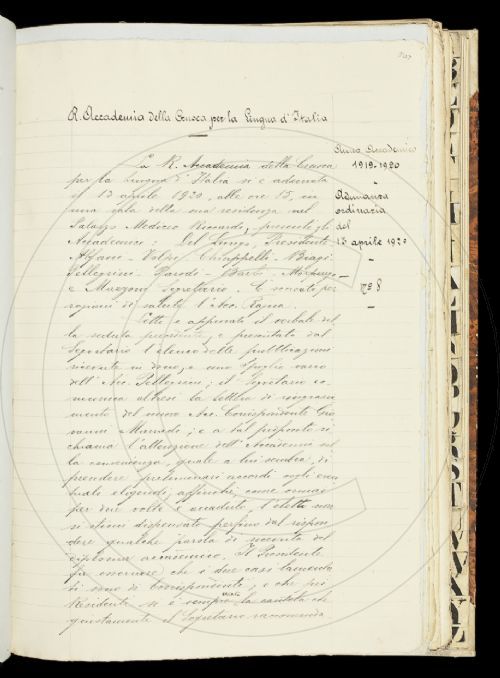 R. Accademia della Crusca per la Lingua d'Italia
Anno Accademico
1919-1920
Adunanza
ordinaria
del
13 aprile 1920
nº 8
La R. Accademia della Crusca
per la Lingua d'Italia si è adunata
il 13 aprile 1920, alle ore 15, in
una sala della sua residenza nel
Palazzo Mediceo Riccardi, presenti gli
Accademici: Del Lungo, Presidente
Alfani - Volpi - Chiappelli - Biagi
Pellegrini - Parodi - Barbi -
e Mazzoni Segretario. È scusato per
ragioni di salute l'Acc. Rajna.
Letto e approvato il verbale del
la seduta precedente, e presentato dal
Segretario l'elenco delle pubblicazioni
ricevute in dono, e uno spoglio
dell'Acc. Pellegrini; il Segretario co
munica altresì la lettera di ringrazia
mento del nuovo Acc. Corrispondente Gio
vanni Marradi; e a tal proposito ri
chiama l'attenzione dell'Accademia sul
la convenienza, quale a lui sembra, di
prendere preliminari accordi cogli even
tuali eligendi, affinché, come ormai
per due volte è accaduto, l'eletto non
si stimi dispensato perfino dal rispon
dere qualche parola di ricevuta del
diploma accademico. Il Presidente
fa osservare che i due casi lamenta
ti sono di Corrispondenti, e che pei
Residenti si è sempre usata la cautela che
giustamente il Segretario raccomanda.